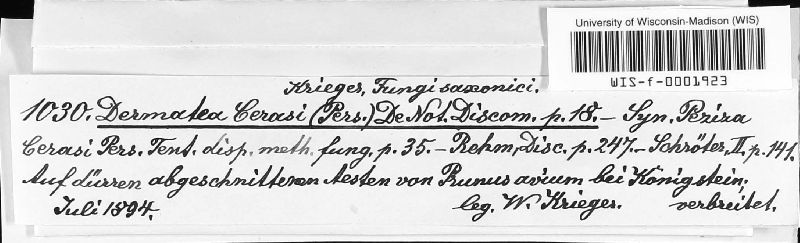 University of Wisconsin-Madison (WIS)
WIS-f-0001923
Krieger, Fungi saxonici.
1030. Dermatea Cerasi (Pers.) De Not. Discom. p. 18. – Syn. Peziza
Cerasi Pers. Tent. disp. meth. fung. p. 35. – Rehm, Disc. p. 247. – Schröter, II. p. 141.
Auf dürren abgeschnittenen Aesten von Prunus avium bei Königstein;
Juli 1894. leg. W. Krieger. verbreitet.